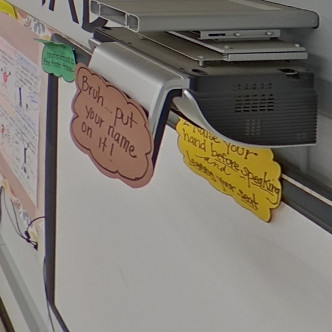 Bruh... put
your name
on it!
raise your
hand before speaking
and
leaving your seats